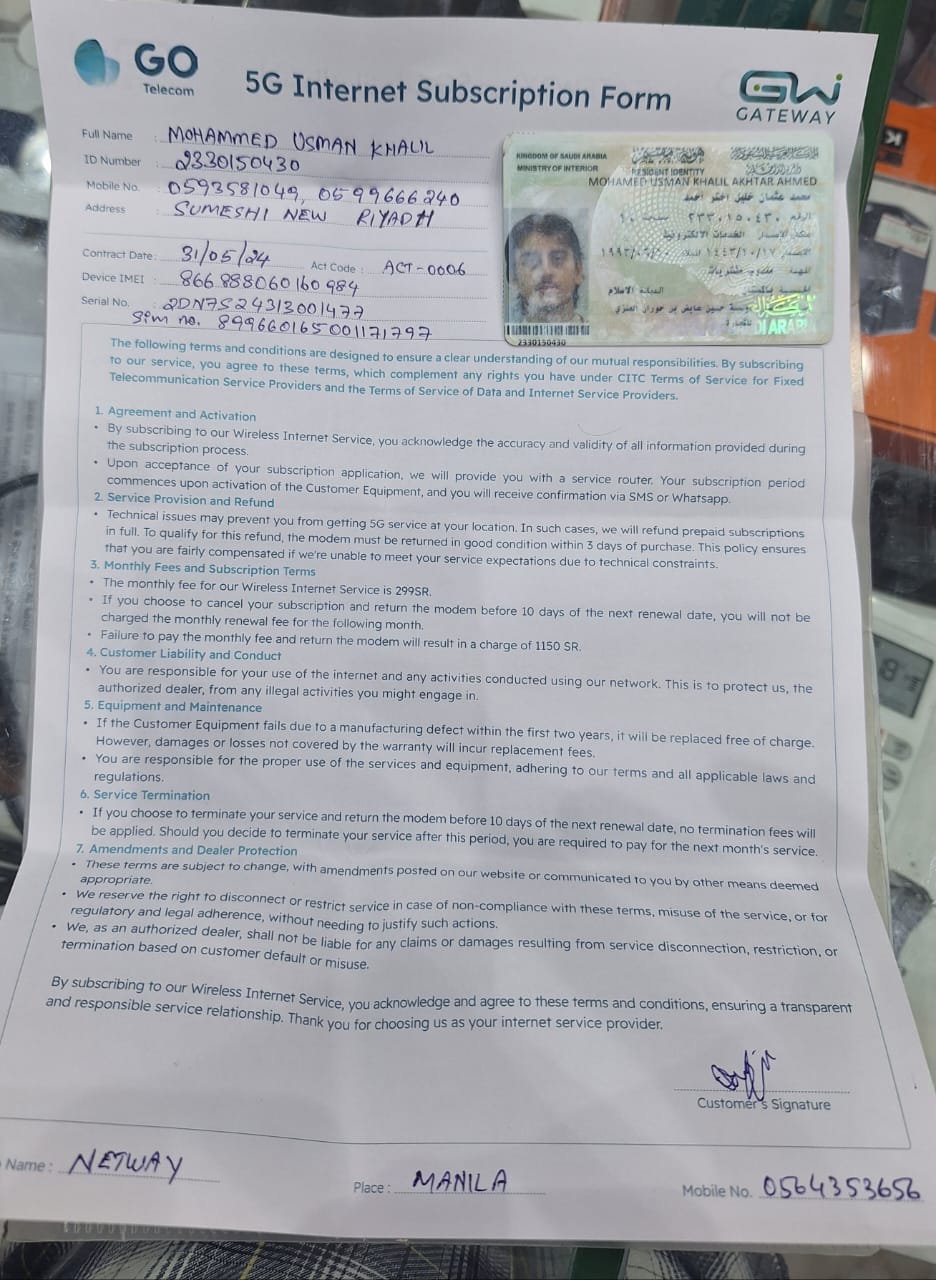 GO
Telecom
5G Internet Subscription Form
GATEWAY
Full Name : MOHAMMED USMAN KHALIL
ID Number : 2330150430
Mobile No. : 0593581049, 0599666240
Address : SUMESHI NEW RIYADH
Contract Date : 31/05/24 Act Code : ACT-0006
Device IMEI : 866888060160984
Serial No. : 2DN7S24313001477
Sim no. 899660165001171797
KINGDOM OF SAUDI ARABIA
MINISTRY OF INTERIOR
RESIDENT IDENTITY
MOHAMED USMAN KHALIL AKHTAR AHMED
محمد عثمان خليل اختر احمد
الرقم ٢٣٣٠١٥٠٤٣٠
مكان الاصدار الخدمات الالكترونية
الديانة الاسلام
2330150430
The following terms and conditions are designed to ensure a clear understanding of our mutual responsibilities. By subscribing
to our service, you agree to these terms, which complement any rights you have under CITC Terms of Service for Fixed
Telecommunication Service Providers and the Terms of Service of Data and Internet Service Providers.
1. Agreement and Activation
• By subscribing to our Wireless Internet Service, you acknowledge the accuracy and validity of all information provided during
the subscription process.
• Upon acceptance of your subscription application, we will provide you with a service router. Your subscription period
commences upon activation of the Customer Equipment, and you will receive confirmation via SMS or Whatsapp.
2. Service Provision and Refund
• Technical issues may prevent you from getting 5G service at your location. In such cases, we will refund prepaid subscriptions
in full. To qualify for this refund, the modem must be returned in good condition within 3 days of purchase. This policy ensures
that you are fairly compensated if we're unable to meet your service expectations due to technical constraints.
3. Monthly Fees and Subscription Terms
• The monthly fee for our Wireless Internet Service is 299SR.
• If you choose to cancel your subscription and return the modem before 10 days of the next renewal date, you will not be
charged the monthly renewal fee for the following month.
• Failure to pay the monthly fee and return the modem will result in a charge of 1150 SR.
4. Customer Liability and Conduct
• You are responsible for your use of the internet and any activities conducted using our network. This is to protect us, the
authorized dealer, from any illegal activities you might engage in.
5. Equipment and Maintenance
• If the Customer Equipment fails due to a manufacturing defect within the first two years, it will be replaced free of charge.
However, damages or losses not covered by the warranty will incur replacement fees.
• You are responsible for the proper use of the services and equipment, adhering to our terms and all applicable laws and
regulations.
6. Service Termination
• If you choose to terminate your service and return the modem before 10 days of the next renewal date, no termination fees will
be applied. Should you decide to terminate your service after this period, you are required to pay for the next month's service.
7. Amendments and Dealer Protection
• These terms are subject to change, with amendments posted on our website or communicated to you by other means deemed
appropriate.
• We reserve the right to disconnect or restrict service in case of non-compliance with these terms, misuse of the service, or for
regulatory and legal adherence, without needing to justify such actions.
• We, as an authorized dealer, shall not be liable for any claims or damages resulting from service disconnection, restriction, or
termination based on customer default or misuse.
By subscribing to our Wireless Internet Service, you acknowledge and agree to these terms and conditions, ensuring a transparent
and responsible service relationship. Thank you for choosing us as your internet service provider.
Customer's Signature
Name : NETWAY Place : MANILA Mobile No. 0564353656